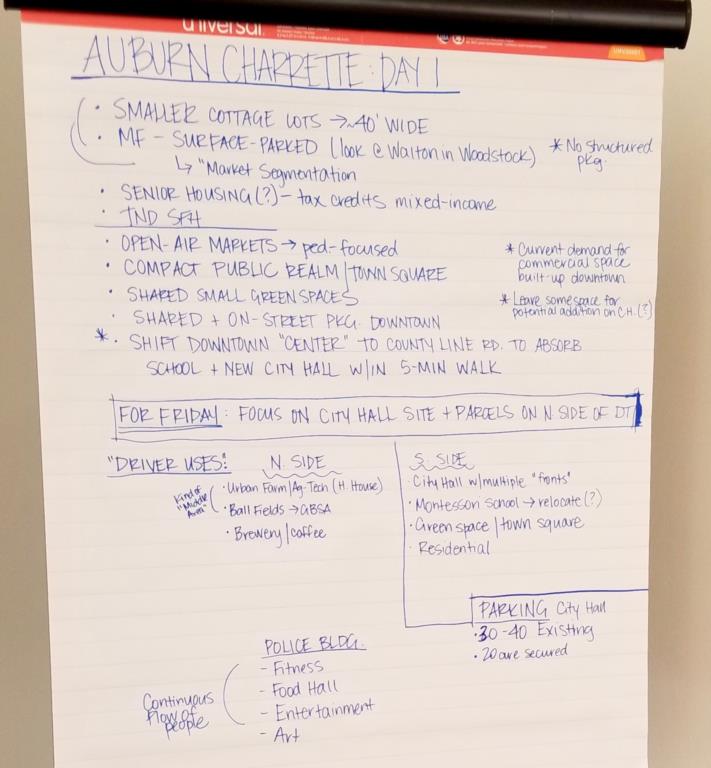 universal
UNIVERSAL
AUBURN CHARRETTE: DAY 1
• SMALLER COTTAGE LOTS → ~40' WIDE
• MF - SURFACE-PARKED (look @ Walton in Woodstock)
* No structured
pkg.
↳ "Market Segmentation
• SENIOR HOUSING (?) - tax credits mixed-income
• TND SFH
• OPEN-AIR MARKETS → ped-focused
• COMPACT PUBLIC REALM / TOWN SQUARE
• SHARED SMALL GREENSPACES
• SHARED + ON-STREET PKG. DOWNTOWN
* • SHIFT DOWNTOWN "CENTER" TO COUNTY LINE RD. TO ABSORB
SCHOOL + NEW CITY HALL W/IN 5-MIN WALK
* Current demand for
commercial space
built-up downtown
* Leave some space for
potential addition on C.H. (?)
FOR FRIDAY: FOCUS ON CITY HALL SITE + PARCELS ON N SIDE OF DT
"DRIVER USES":
N. SIDE
Kind of
"Middle
Area"
• Urban Farm/Ag-Tech (H. House)
• Ball Fields → GBSA
• Brewery/coffee
S. SIDE
• City Hall w/multiple "fronts"
• Montessori School → relocate (?)
• Green space / town square
• Residential
PARKING City Hall
• 30-40 Existing
• 20 are secured
POLICE BLDG.
- Fitness
- Food Hall
- Entertainment
- Art
Continuous
flow of
people